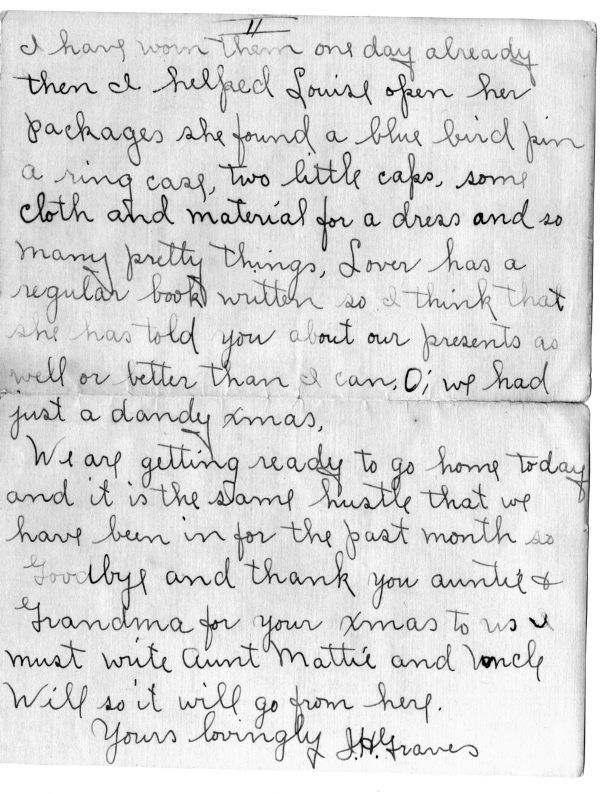 11
I have worn them one day already
then I helped Louise open her
packages she found a blue bird pin
a ring case, two little caps, some
cloth and material for a dress and so
many pretty things, Lover has a
regular book written so I think that
she has told you about our presents as
well or better than I can, O; we had
just a dandy xmas,
We are getting ready to go home today
and it is the same hustle that we
have been in for the past month so
Goodbye and thank you auntie &
Grandma for your xmas to us I
must write Aunt Mattie and Uncle
Will so it will go from here.
Yours lovingly J.H. Graves